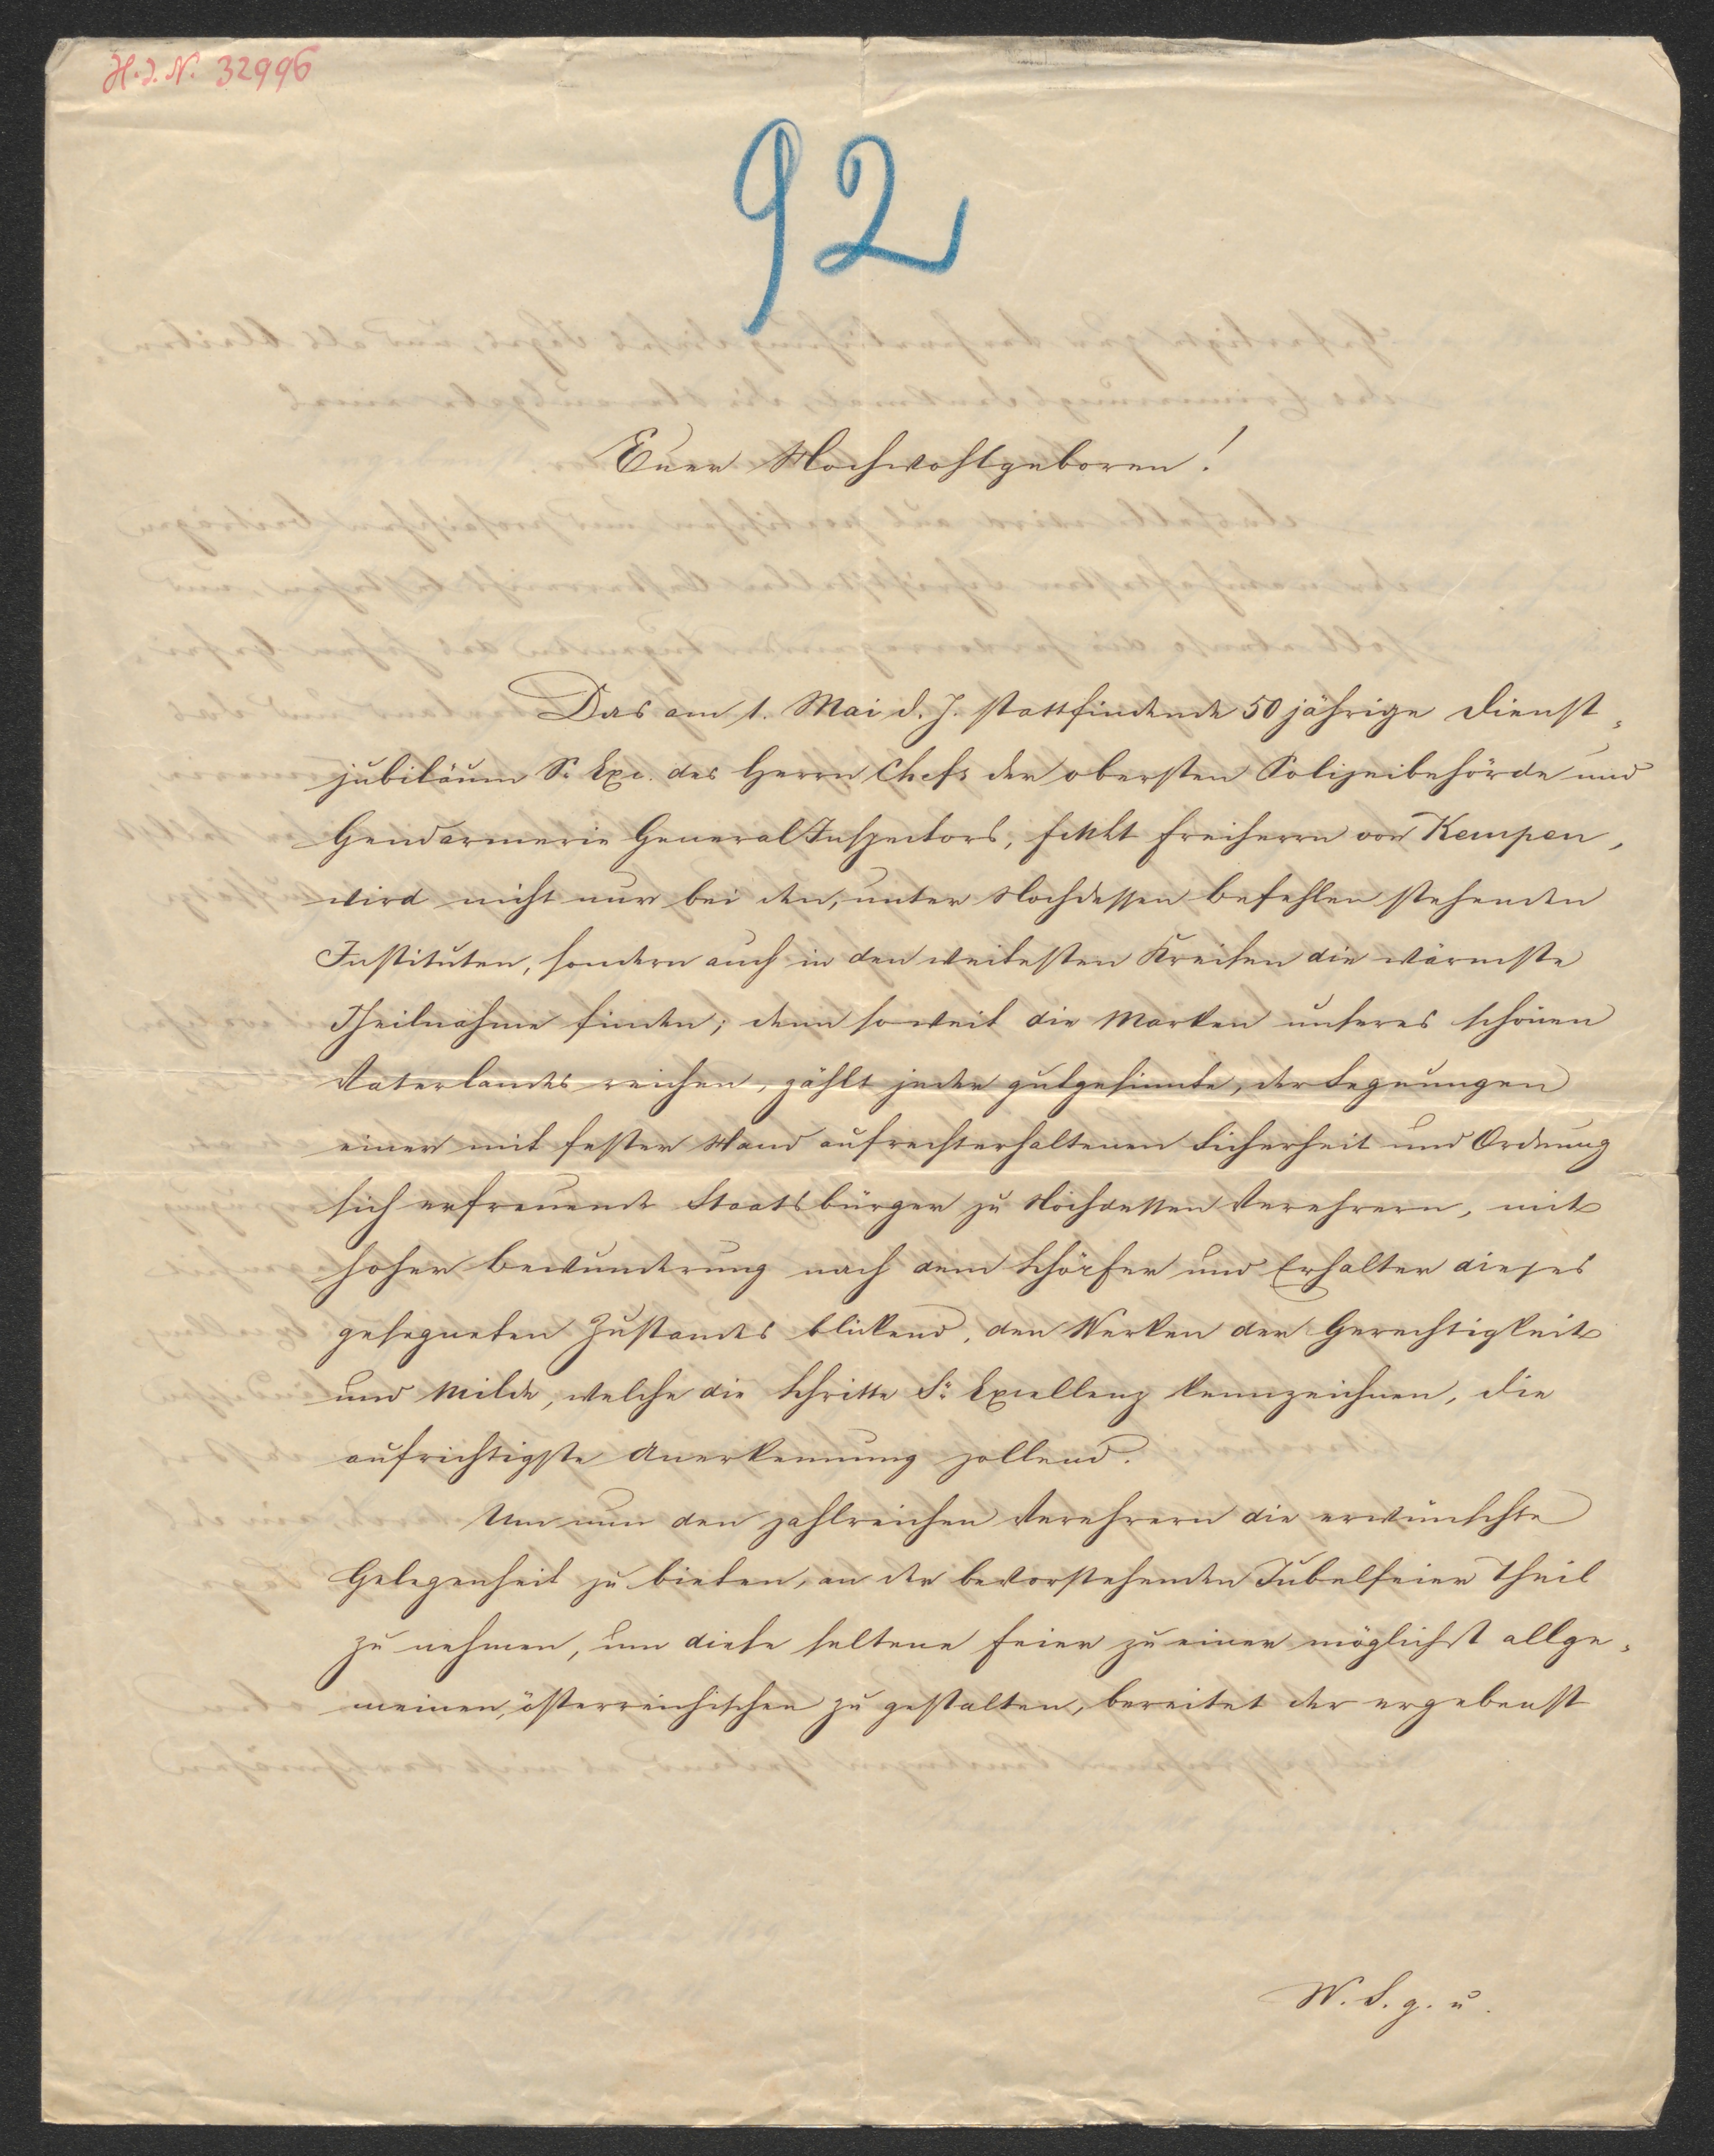 H. I. N. 32996
92
Euer Hochwohlgeboren!
Das am 1. Mai d. J. stattfindende 50 jährige Dienst-
jubiläum Sr Exc. des Herrn Chefs der obersten Polizeibehörde und
Gendarmerie General Inspectors, FMLt Freiherrn von Kempen,
wird nicht nur bei den, unter Hochdessen Befehlen stehenden
Instituten, sondern auch in den weitesten Kreisen die wärmste
Theilnahme finden; denn soweit die Marken unseres schönen
Vaterlandes reichen, zählt jeder gutgesinnte, der Segnungen
einer mit fester Hand aufrechterhaltenen Sicherheit und Ordnung
sich erfreuende Staatsbürger zu Hochdessen Verehrern, mit
hoher Bewunderung nach dem Schöpfer und Erhalter dieses
gesegneten Zustandes blickend, den Werken der Gerechtigkeit
und Milde, welche die Schritte Sr Excellenz kennzeichnen, die
aufrichtigste Anerkennung zollend.
Um nun den zahlreichen Verehrern die erwünschte
Gelegenheit zu bieten, an der bevorstehenden Jubelfeier Theil
zu nehmen, um diese seltene Feier zu einer möglichst allge-
meinen, österreichischen zu gestalten, bereitet der ergebenst
W. S. g. u.